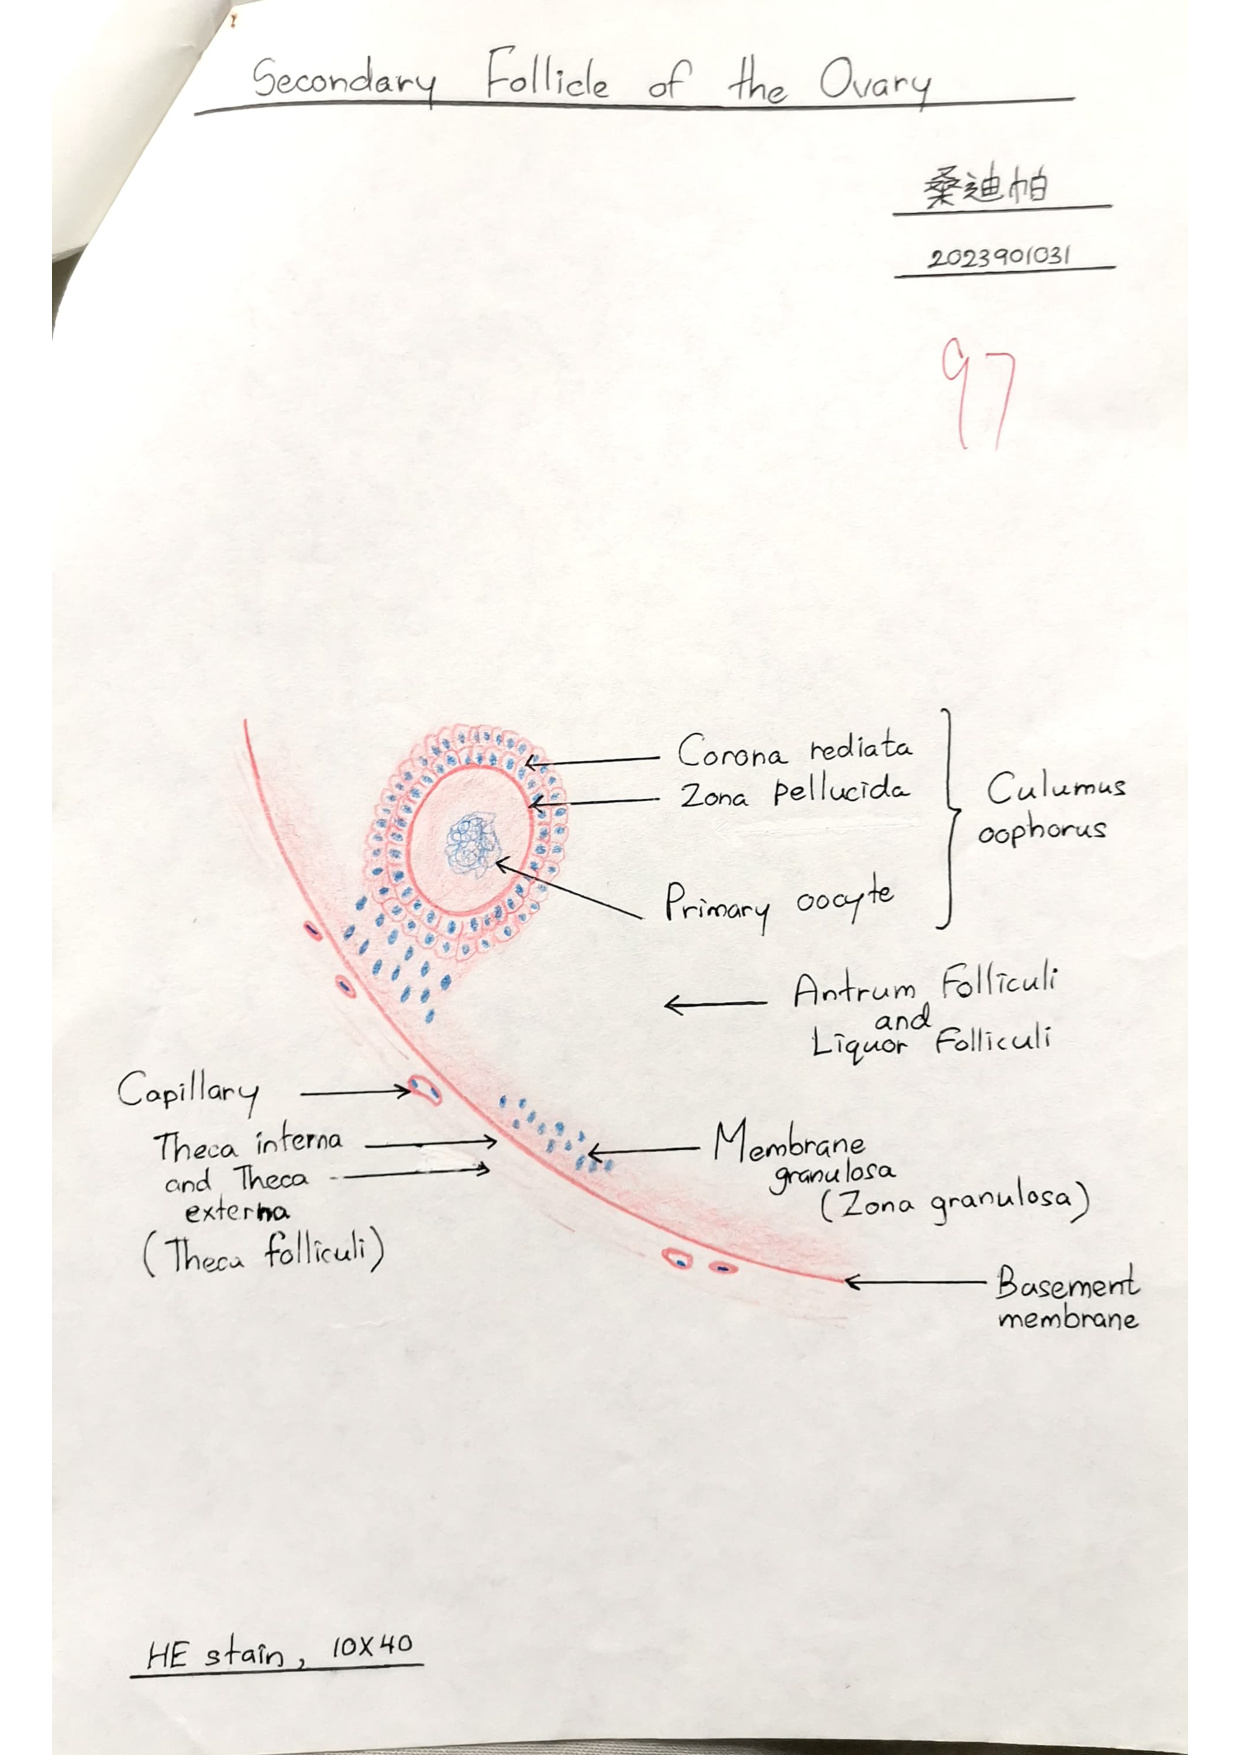 Secondary Follicle of the Ovary
桑迪帕
2023901031
97
Corona rediata
Zona pellucida
Primary oocyte
Culumus
oophorus
Antrum Folliculi
and
Liquor Folliculi
Capillary
Theca interna
and Theca
externa
(Theca folliculi)
Membrane
granulosa
(Zona granulosa)
Basement
membrane
HE stain, 10X40